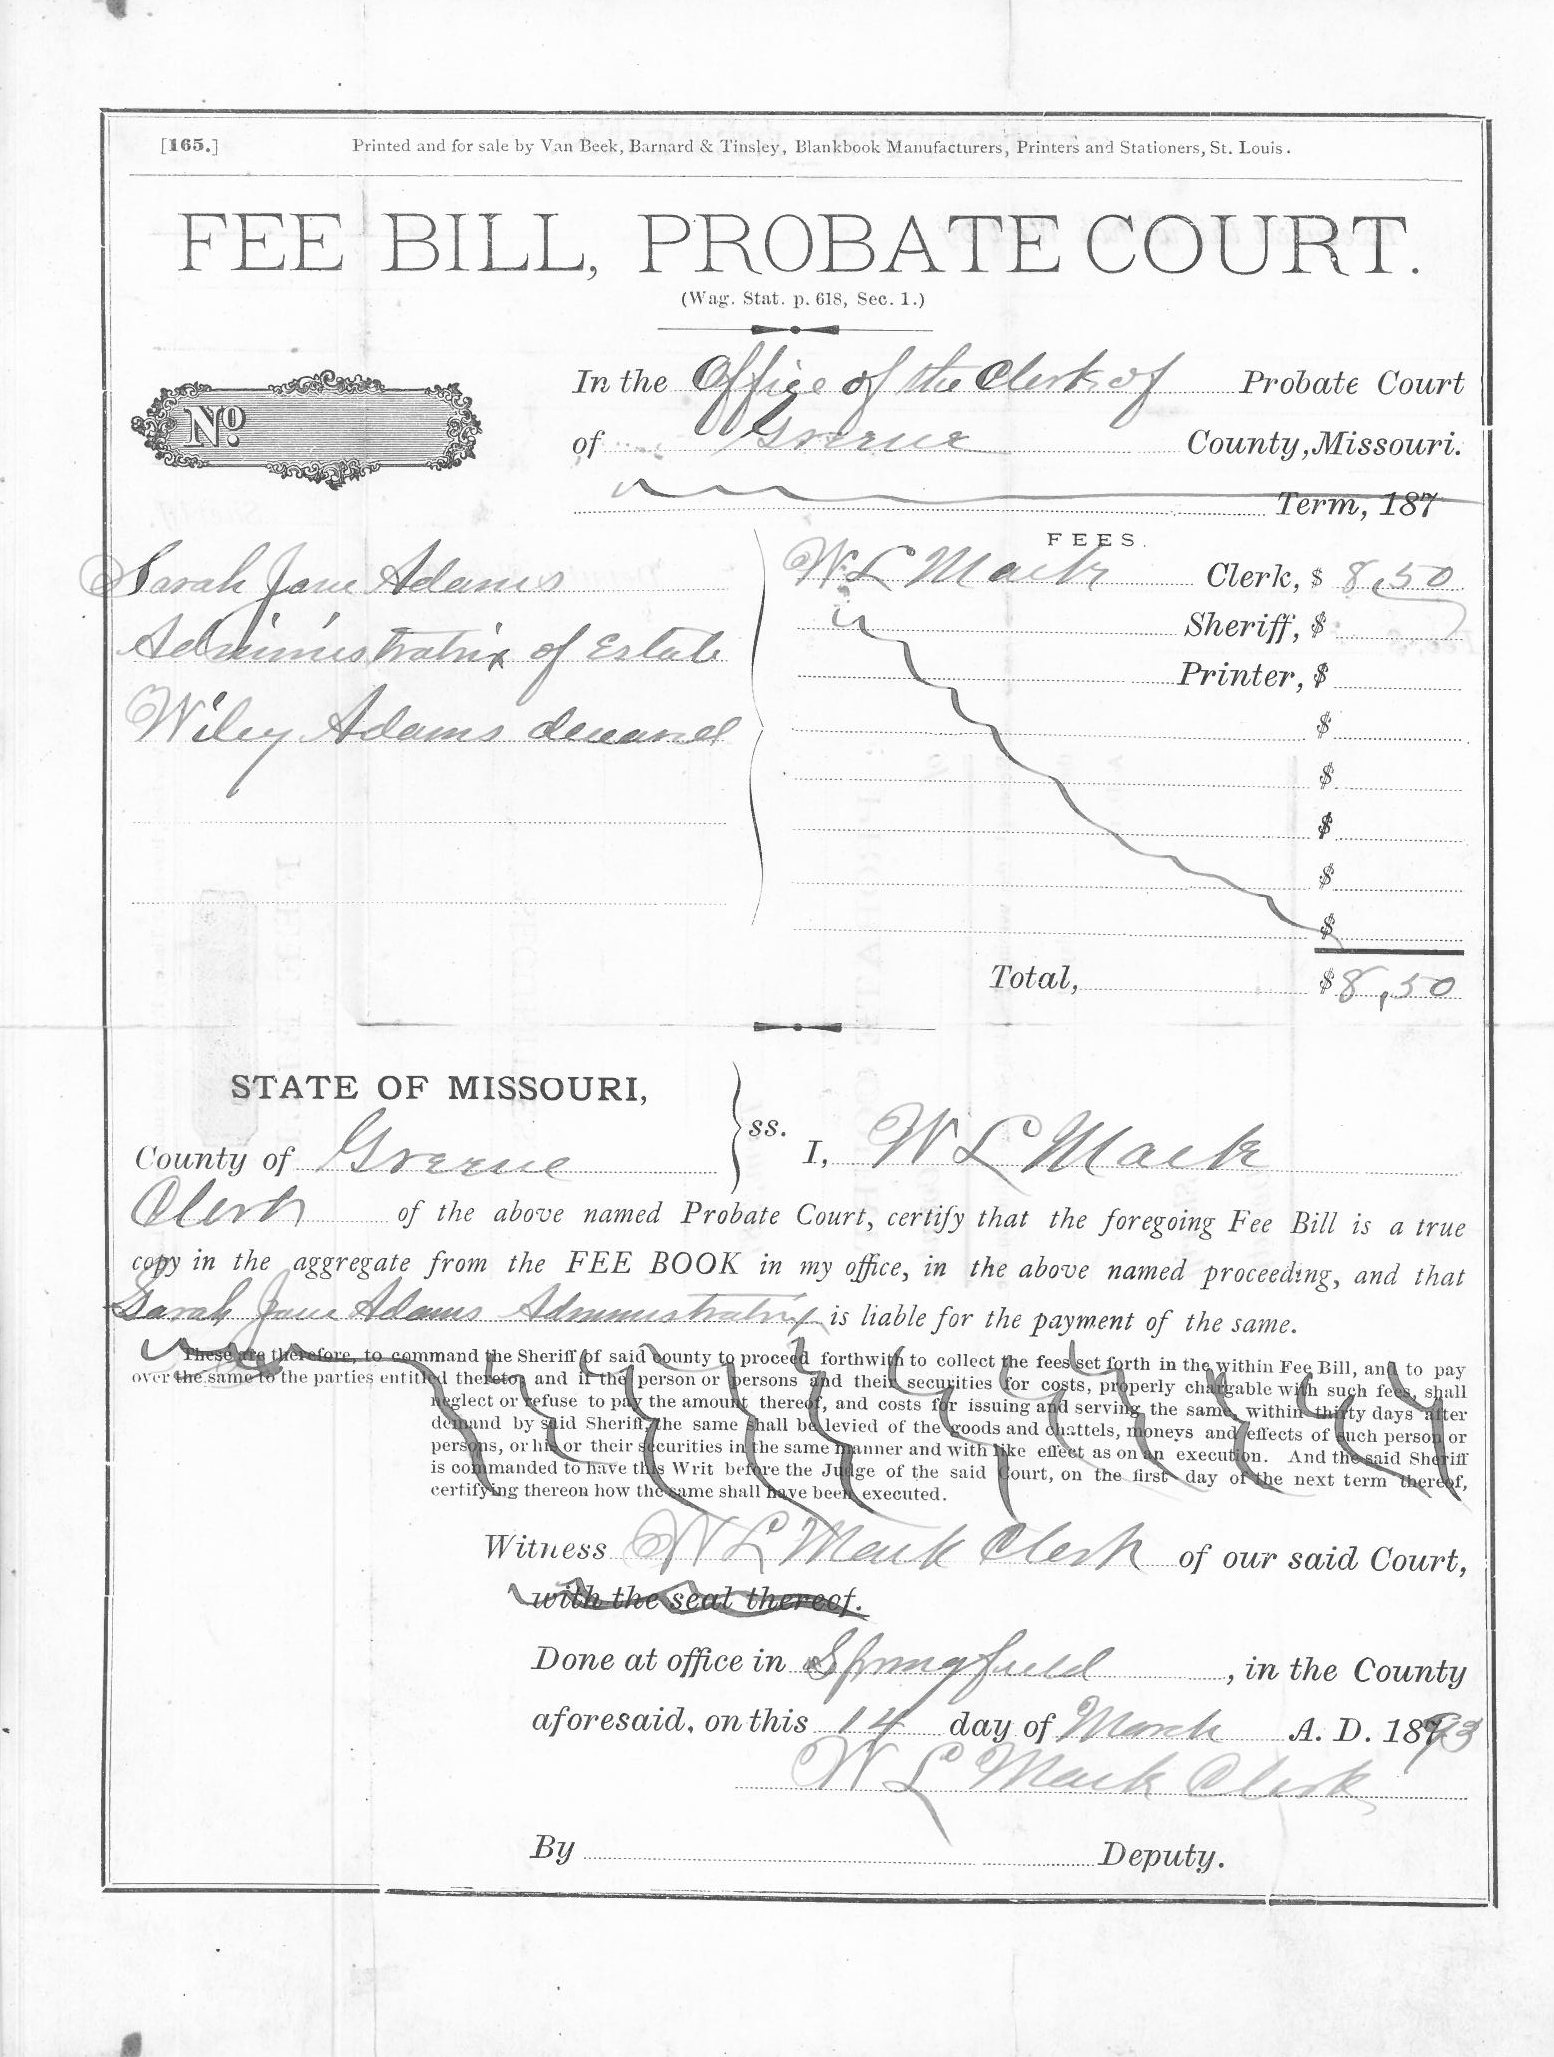 [165.] Printed and for sale by Van Beek, Barnard & Tinsley, Blankbook Manufacturers, Printers and Stationers, St. Louis.
FEE BILL, PROBATE COURT.
(Wag. Stat. p. 618, Sec. 1.)
In the Office of the Clerk of Probate Court
No.
of Greene County, Missouri.
Term, 187
FEES.
Sarah Jane Adams
Administratrix of Estate
Wiley Adams deceased
W L Mack Clerk, $ 8,50
Sheriff, $
Printer, $
$
$
$
$
$
Total, $ 8,50
STATE OF MISSOURI,
County of Greene
ss. I, W L Mack
Clerk of the above named Probate Court, certify that the foregoing Fee Bill is a true
copy in the aggregate from the FEE BOOK in my office, in the above named proceeding, and that
Sarah Jane Adams Administratrix is liable for the payment of the same.
These are therefore, to command the Sheriff of said county to proceed forthwith to collect the fees set forth in the within Fee Bill, and to pay
over the same to the parties entitled thereto, and if the person or persons and their securities for costs, properly chargable with such fees, shall
neglect or refuse to pay the amount thereof, and costs for issuing and serving the same, within thirty days after
demand by said Sheriff, the same shall be levied of the goods and chattels, moneys and effects of such person or
persons, or his or their securities in the same manner and with like effect as on an execution. And the said Sheriff
is commanded to have this Writ before the Judge of the said Court, on the first day of the next term thereof,
certifying thereon how the same shall have been executed.
Witness W L Mack Clerk of our said Court,
with the seal thereof.
Done at office in Springfield, in the County
aforesaid, on this 14 day of March A. D. 1893
W L Mack Clerk
By Deputy.